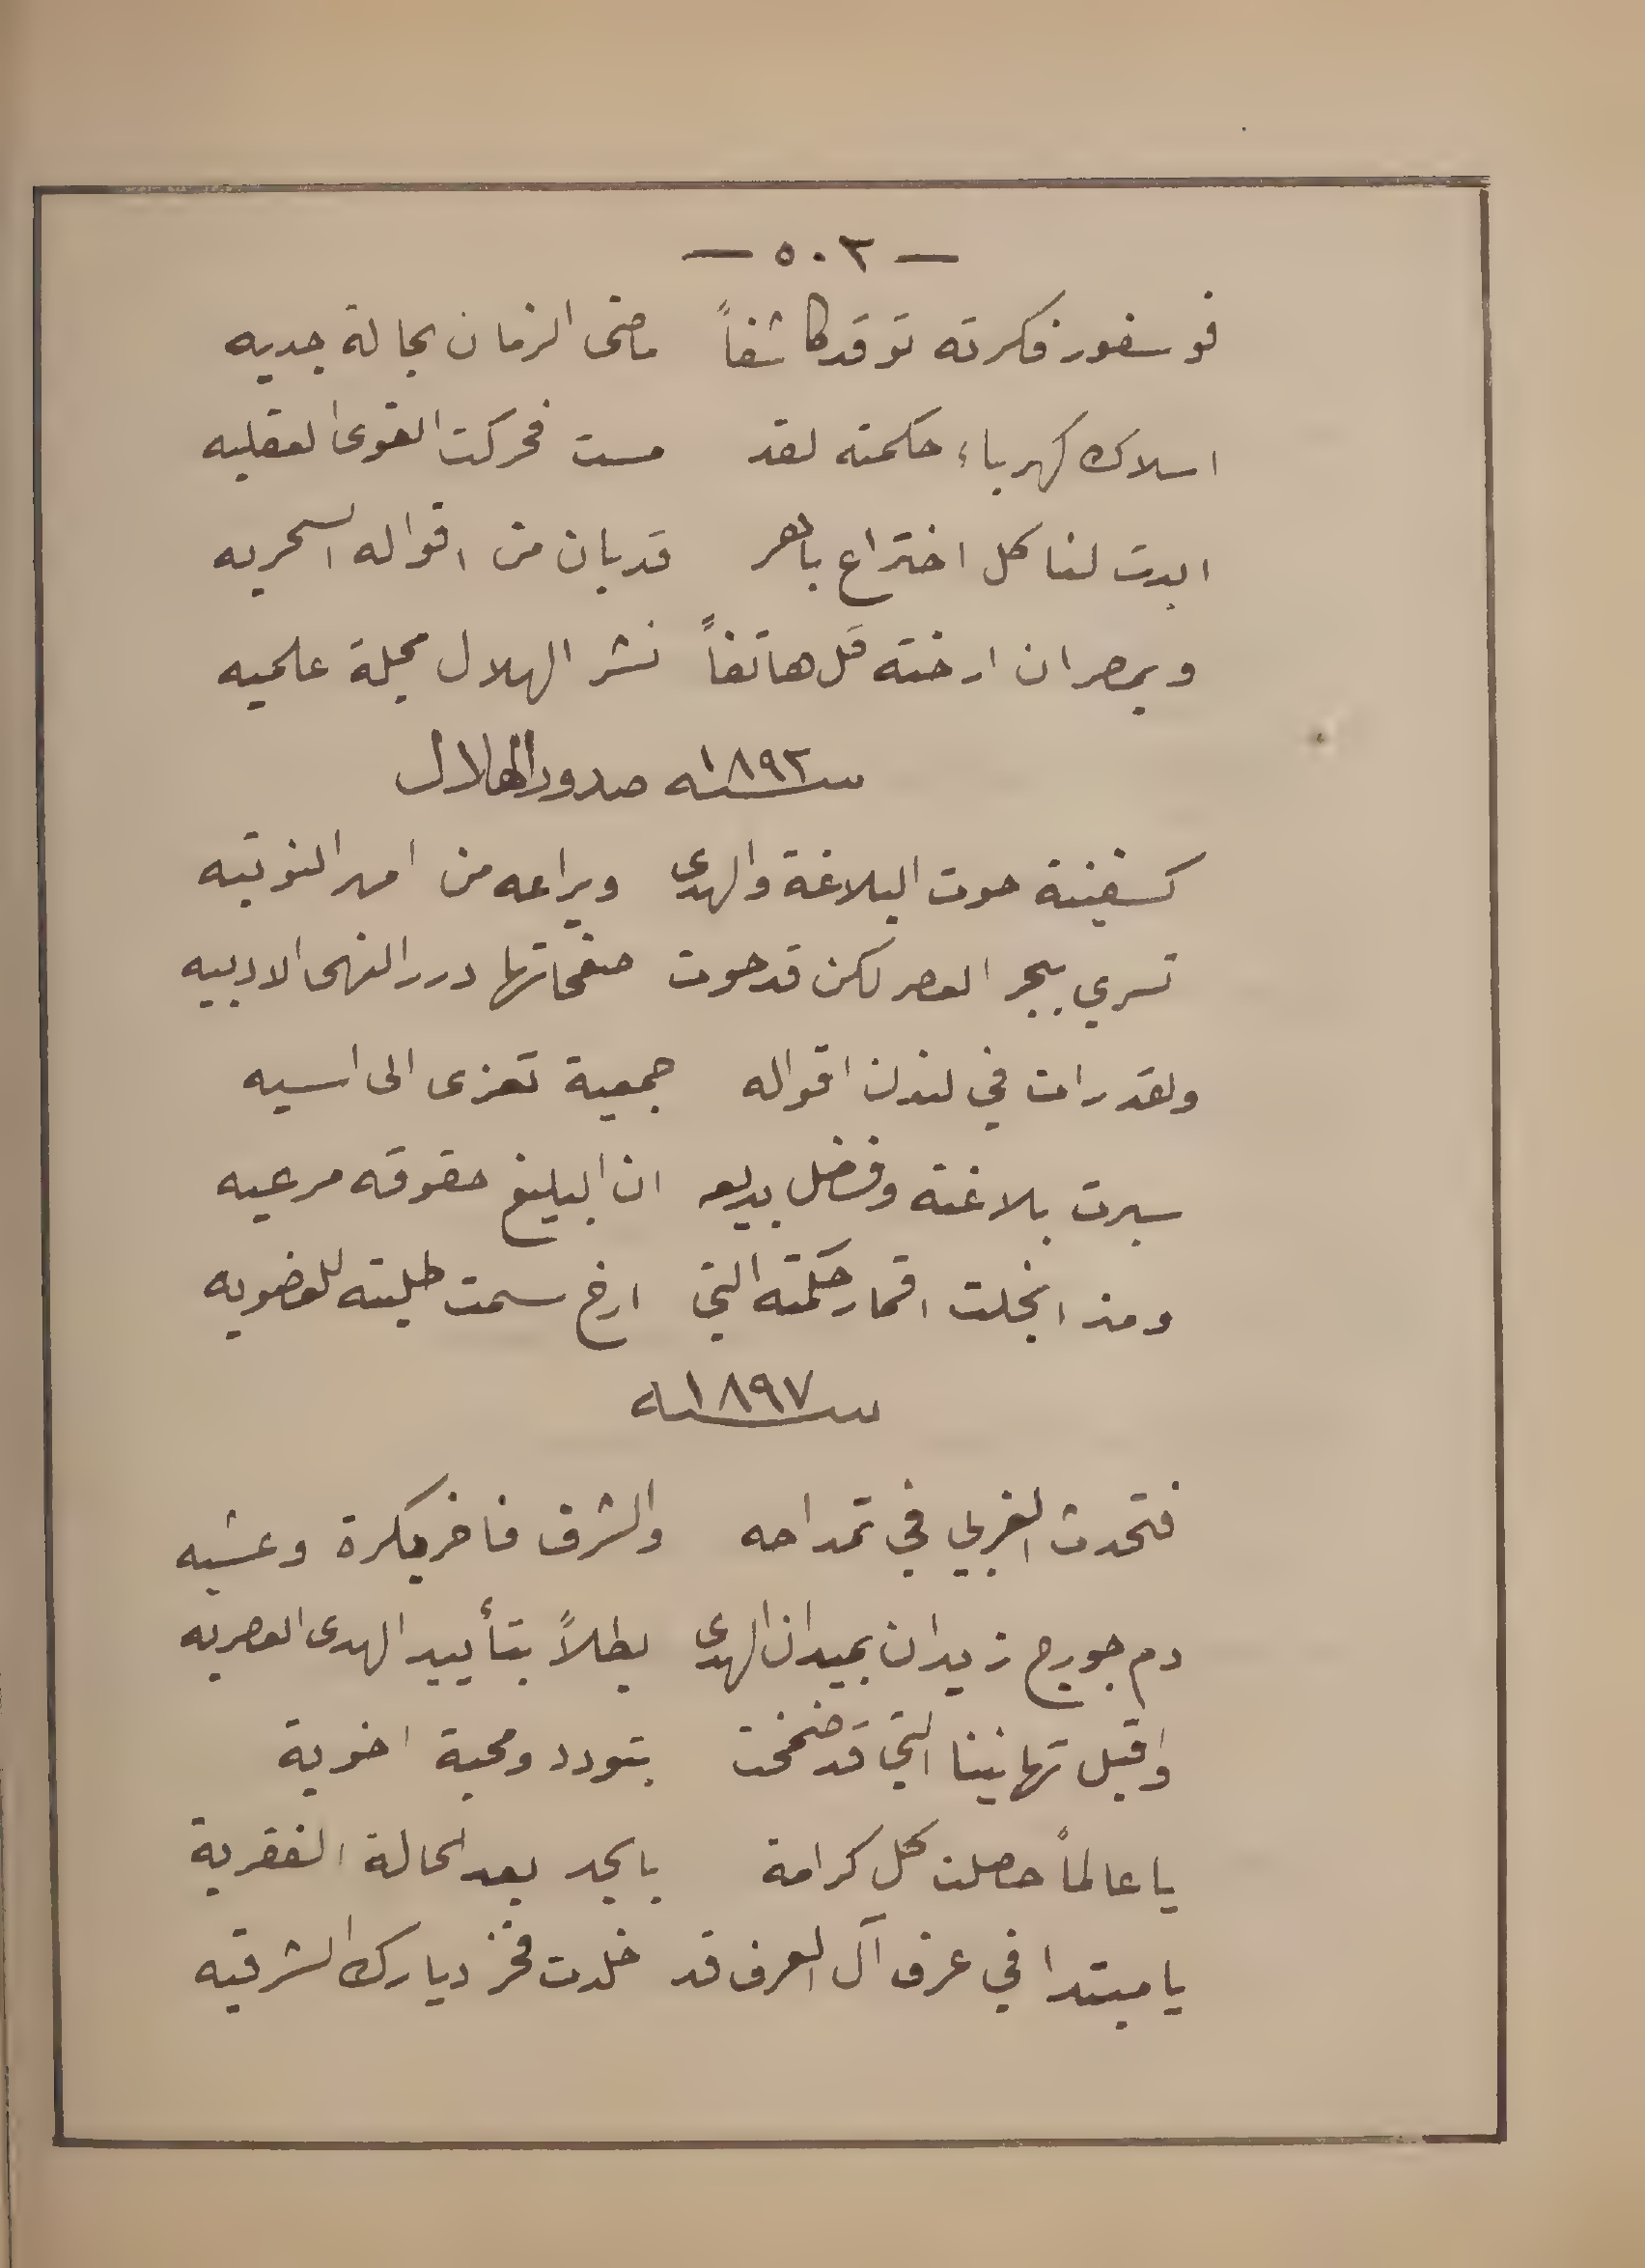 — ٥٠٣ —
فوسفور فكرته توقد كاشفاً ماضى الزمان بحالة جديه
اسلاك كهرباء حكمته لقد مست فحركت القوى العقليه
ابدت لنا كل اختراع باهر قد بان من اقواله السحريه
وبمصر ان ارخته قل هاتفاً نشر الهلال مجلة علميه
سنه ١٨٩٢ صدور الهلال
كسفينة حوت البلاغة والهدى ويراعه من امهر النوتيه
تسري ببحر العصر لكن قد حوت صفحاتها درر النهى الادبيه
ولقد رات في لندن اقواله جمعية تعزى الى اسيه
سبرت بلاغته وفضل بديعه ان البليغ حقوقه مرعيه
ومذ انجلت اقمار حكمته التي ارخ سمت طلبته للعضويه
سنه ١٨٩٧
فتحدث الغربي في تمداحه والشرق فاخر بكرة وعشيه
دم جورج زيدان بميدان الهدى بطلاً بتأييد الهدى العصريه
واقبل تهانينا التي قد ضمخت بتودد ومحبة اخوية
يا عالماً حصلت كل كرامة بالجد بعد الحالة الفقرية
يا مبتدا في عرف آل العرف قد خلدت فخر ديارك الشرقيه